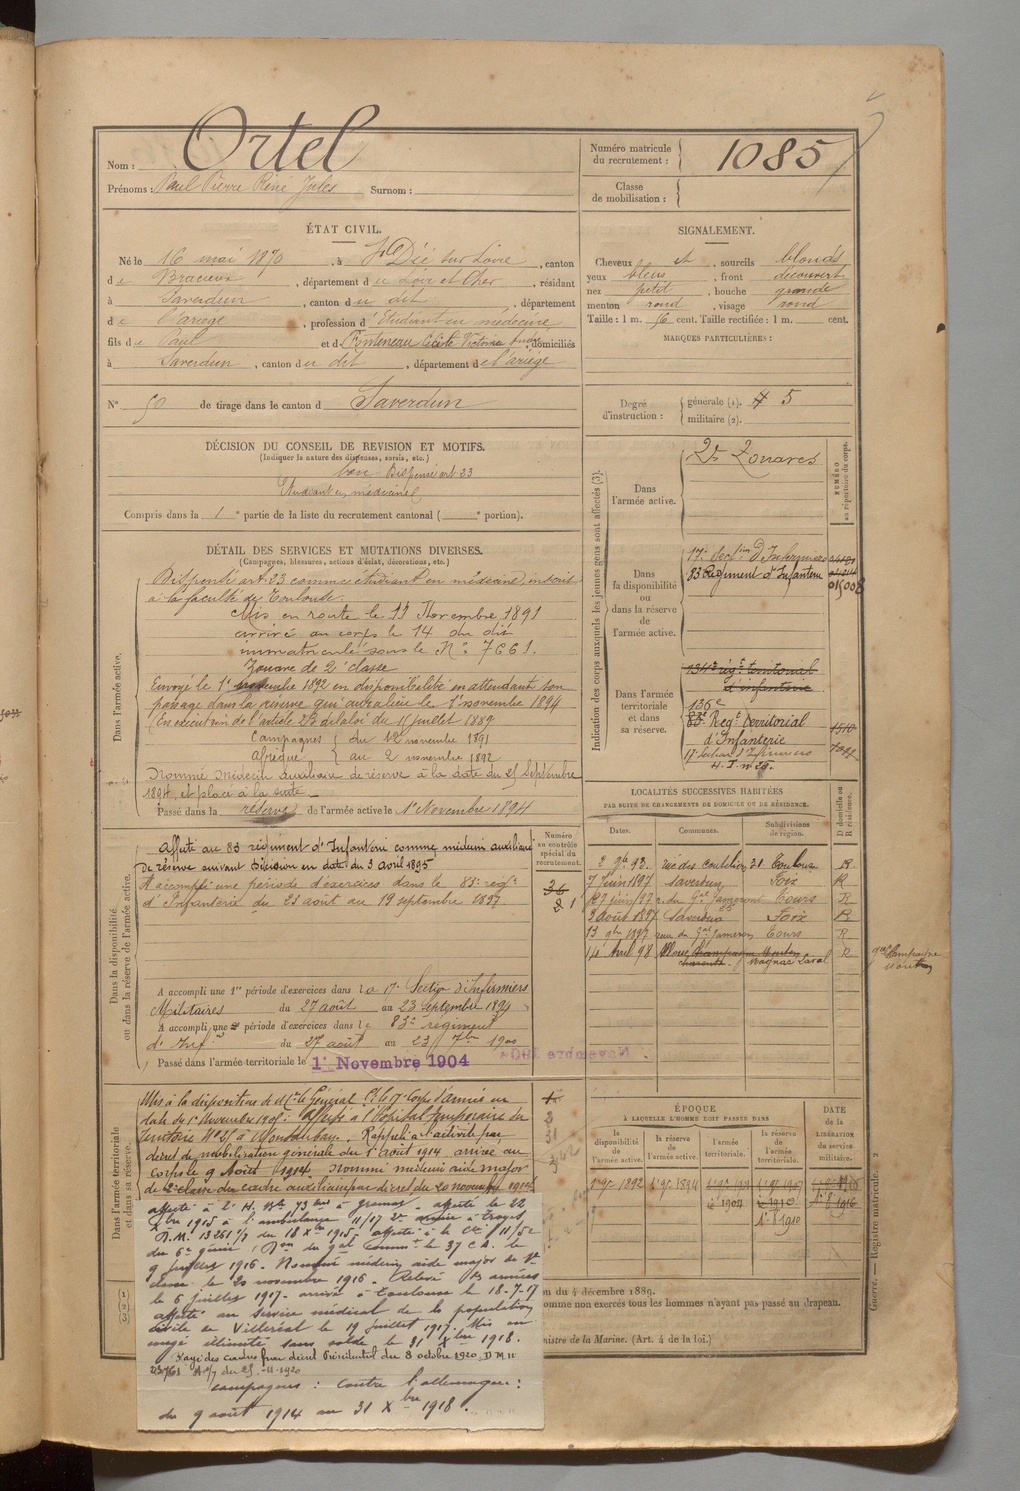 Nom : Ortel
Prénoms : Paul Pierre René Jules Surnom :
Numéro matricule du recrutement : 1085
Classe de mobilisation :
ÉTAT CIVIL.
Né le 16 mai 1870, à St Dié sur Loire, canton
de Bracieux, département du Loir et Cher, résidant
à Saverdun, canton du dit, département
de l'ariège, profession d'Etudiant en médecine
fils de Paul et de Fonteneau Cécile Victoire, domiciliés
à Saverdun, canton du dit, département de l'ariège
N° 50 de tirage dans le canton d Saverdun
SIGNALEMENT.
Cheveux et, sourcils blonds
yeux bleus, front découvert
nez petit, bouche grande
menton rond, visage rond
Taille : 1 m. 56 cent. Taille rectifiée : 1 m. cent.
MARQUES PARTICULIÈRES :
Degré d'instruction : générale (1). 5
militaire (2).
DÉCISION DU CONSEIL DE REVISION ET MOTIFS.
(Indiquer la nature des dispenses, sursis, etc.)
bon Dispensé art. 23
Etudiant en médecine
Compris dans la 1e partie de la liste du recrutement cantonal ( e portion).
DÉTAIL DES SERVICES ET MUTATIONS DIVERSES.
(Campagnes, blessures, actions d'éclat, décorations, etc.)
Dans l'armée active.
Dispensé art. 23 comme étudiant en médecine, inscrit
à la faculté de Toulouse.
Mis en route le 11 Novembre 1891
arrivé au corps le 14 du dit
immatriculé sous le N° 7661.
Zouave de 2e classe
Envoyé le 1er novembre 1892 en disponibilité en attendant son
passage dans la réserve qui aura lieu le 1er novembre 1894
(En exécution de l'article 23 de la loi du 15 juillet 1889
Campagnes du 12 novembre 1891
Afrique au 2 novembre 1892
Nommé Médecin auxiliaire de réserve à la date du 25 Septembre
1894, et placé à la suite
Passé dans la réserve de l'armée active le 1er Novembre 1894
Indication des corps auxquels les jeunes gens sont affectés (3).
NUMÉRO au répertoire du corps.
Dans l'armée active. 2e Zouaves
Dans la disponibilité ou dans la réserve de l'armée active.
17e Section d'Infirmiers
83 Régiment d'Infanterie
015008
Dans l'armée territoriale et dans sa réserve.
134e rég.t territorial
d'infanterie
136e
83e Reg.t territorial
d'Infanterie
17e Section d'Infirmiers
LOCALITÉS SUCCESSIVES HABITÉES
PAR SUITE DE CHANGEMENTS DE DOMICILE OU DE RÉSIDENCE.
Dates. Communes. Subdivisions de région. D domicile ou R résidence.
rue des couteliers 31 Toulouse R.
7 juin 1897 Saverdun Foix R
27 juin 97 Tours R
9 août 1897 Saverdun Foix R
13 9bre 1897 Tours R
14 Avril 98 Magnac Laval R
Dans la disponibilité ou dans la réserve de l'armée active.
Numéro au contrôle spécial du recrutement.
Affecté au 83 régiment d'Infanterie comme médecin auxiliaire
de réserve suivant Décision en date du 3 avril 1895
A accompli une période d'exercices dans le 83e régt
d'Infanterie du 23 août au 19 septembre 1897.
A accompli une 1re période d'exercices dans la 17e Section d'Infirmiers
Militaires du 27 août au 23 septembre 1894
A accompli une 2e période d'exercices dans le 83e régiment
d'Inf.ie du 27 août au 23 7bre 1900
Passé dans l'armée territoriale le 1er Novembre 1904
Dans l'armée territoriale et dans sa réserve.
Mis à la disposition de Mr le Général Ct le 17e Corps d'armée en
date du 1er Novembre 1905. Affecté à l'hôpital temporaire du
territoire N° 25 à Montauban. Rappelé à l'activité par
décret de mobilisation générale du 1er août 1914 arrivé au
corps le 9 Août 1914. nommé médecin aide major
de 2e classe du cadre auxiliaire par décret du 20 novembre 1914
affecté à l'H. affecté le 22
Xbre 1915 à l'ambulance 11/17
D.M. 13261 1/7 du 18 Xbre 1915
du 6e génie le 37 C.A. le
9 juillet 1916. Nommé médecin aide major de 1re
classe le 20 novembre 1916. Relevé
le 6 juillet 1917. arrivé à Toulouse le 18-7-17
affecté au service médical de la population
civile de Villeréal le 19 juillet 1917. Mis en
congé illimité sans solde le 31 Xbre 1918.
Rayé des cadres par décret Présidentiel du 8 octobre 1920. D.M. n°
23761 A 1/7 du 25-11-1920
campagnes : contre l'allemagne :
du 9 août 1914 au 31 Xbre 1918.
ÉPOQUE
À LAQUELLE L'HOMME DOIT PASSER DANS
la disponibilité de l'armée active. la réserve de l'armée active. l'armée territoriale. la réserve de l'armée territoriale.
DATE de la LIBÉRATION du service militaire.
1er 9bre 1892 1er 9bre 1894
on du 4 décembre 1889.
omme non exercés tous les hommes n'ayant pas passé au drapeau.
nistre de la Marine. (Art. 4 de la loi.)
Guerre. — Registre matricule. 2